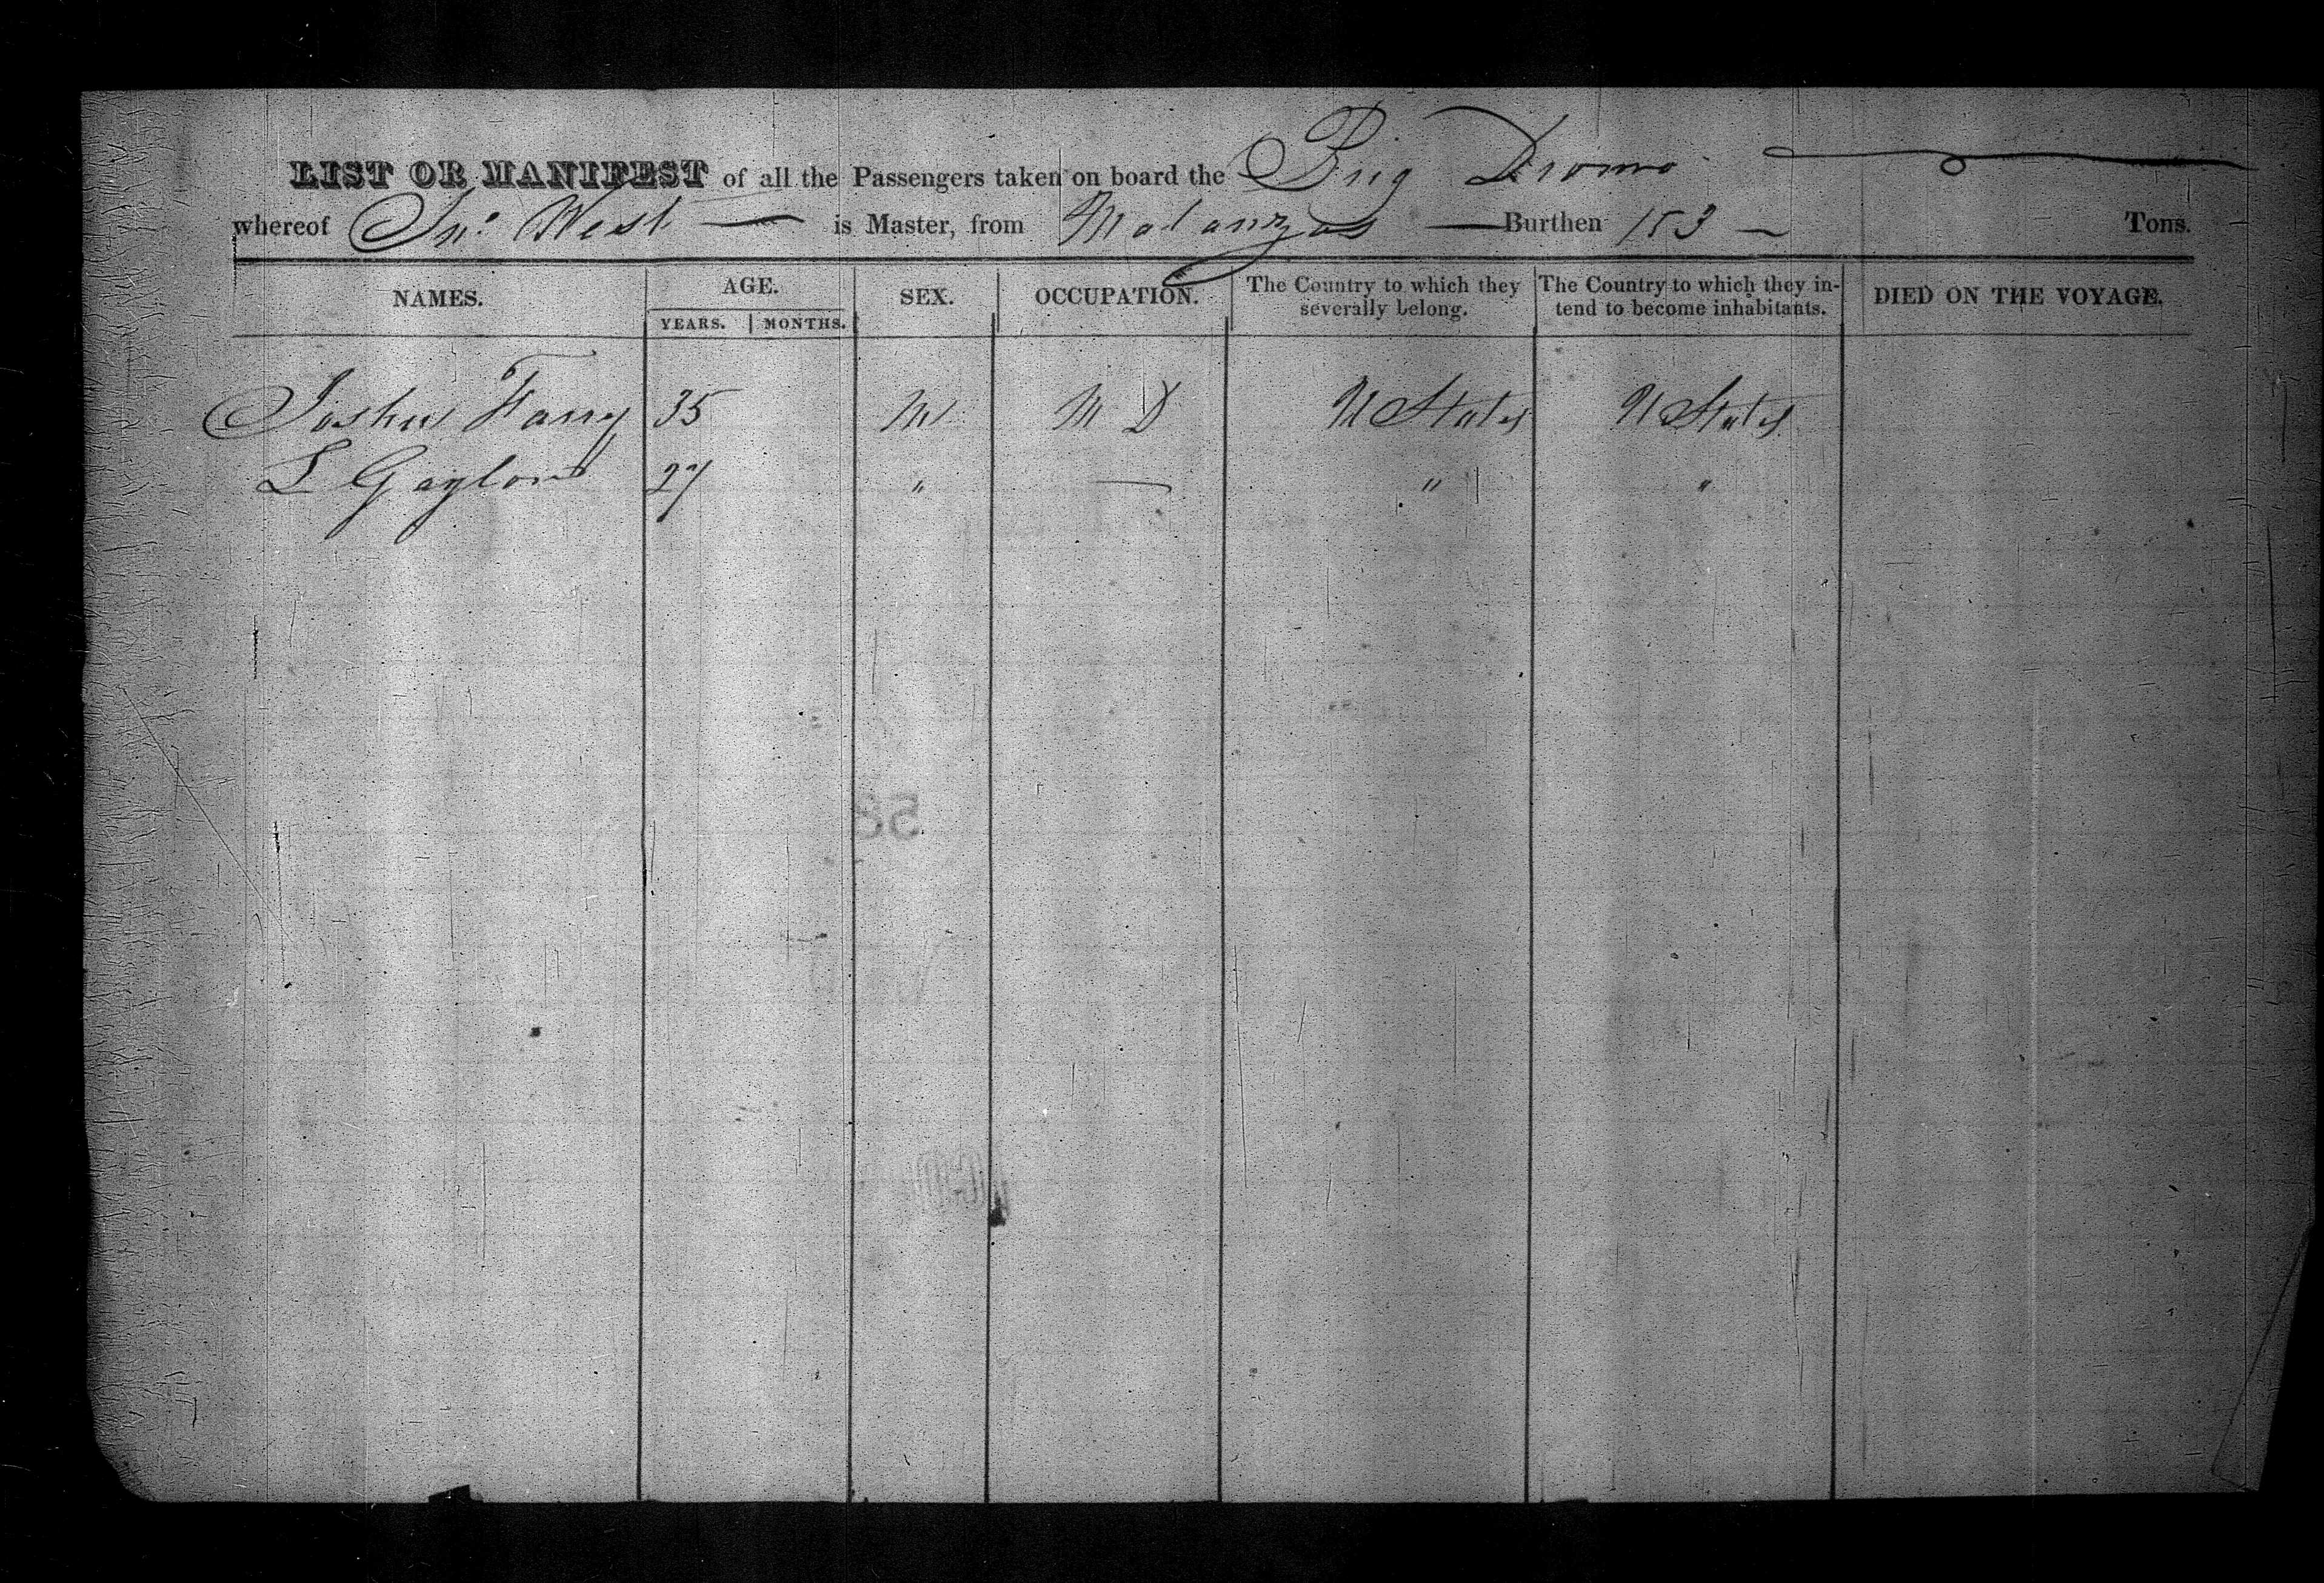 LIST OR MANIFEST of all the Passengers taken on board the Brig Dromo
whereof Jno. West is Master, from Matanzas Burthen 153 Tons.
NAMES. AGE. SEX. OCCUPATION. The Country to which they severally belong. The Country to which they intend to become inhabitants. DIED ON THE VOYAGE.
YEARS. MONTHS.
Joshu 35 M M D U States U States
L Gaylord 27 " — " "
58